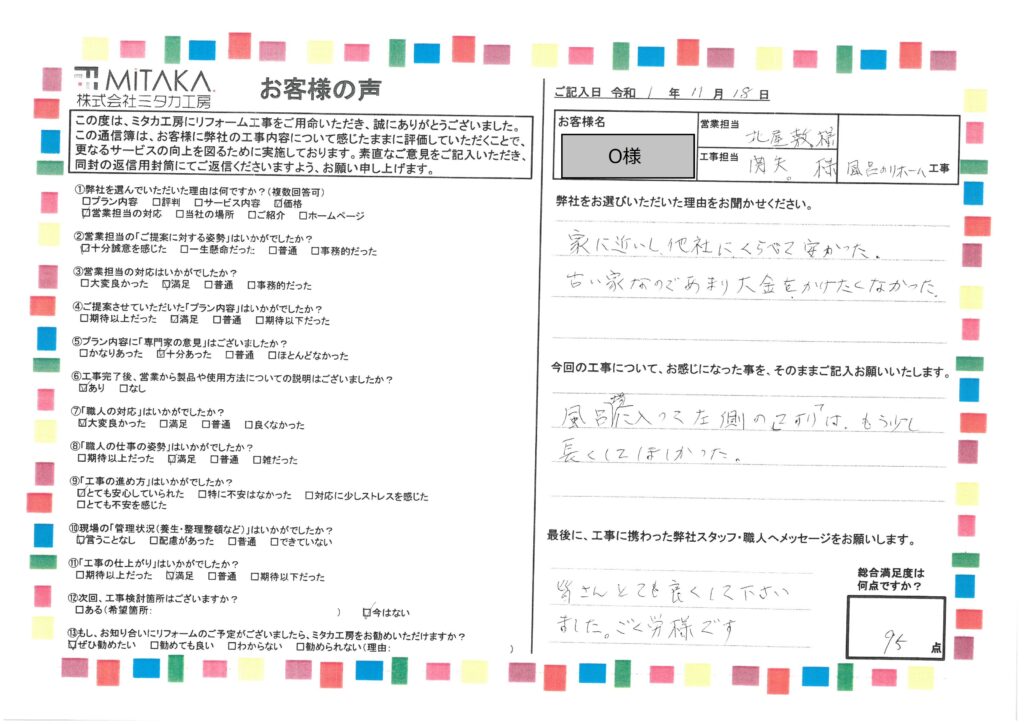 MiTAKA
株式会社ミタカ工房
お客様の声
この度は、ミタカ工房にリフォーム工事をご用命いただき、誠にありがとうございました。
この通信簿は、お客様に弊社の工事内容について感じたままに評価していただくことで、
更なるサービスの向上を図るために実施しております。素直なご意見をご記入いただき、
同封の返信用封筒にてご返信くださいますよう、お願い申し上げます。
①弊社を選んでいただいた理由は何ですか?(複数回答可)
□プラン内容 □評判 □サービス内容 ☑価格
☑営業担当の対応 □当社の場所 □ご紹介 □ホームページ
②営業担当の「ご提案に対する姿勢」はいかがでしたか?
☑十分誠意を感じた □一生懸命だった □普通 □事務的だった
③営業担当の対応はいかがでしたか?
□大変良かった ☑満足 □普通 □事務的だった
④ご提案させていただいた「プラン内容」はいかがでしたか?
□期待以上だった ☑満足 □普通 □期待以下だった
⑤プラン内容に「専門家の意見」はございましたか?
□かなりあった ☑十分あった □普通 □ほとんどなかった
⑥工事完了後、営業から製品や使用方法についての説明はございましたか?
☑あり □なし
⑦「職人の対応」はいかがでしたか?
☑大変良かった □満足 □普通 □良くなかった
⑧「職人の仕事の姿勢」はいかがでしたか?
□期待以上だった ☑満足 □普通 □雑だった
⑨「工事の進め方」はいかがでしたか?
☑とても安心していられた □特に不安はなかった □対応に少しストレスを感じた
□とても不安を感じた
⑩現場の「管理状況(養生・整理整頓など)」はいかがでしたか?
☑言うことなし □配慮があった □普通 □できていない
⑪「工事の仕上がり」はいかがでしたか?
□期待以上だった ☑満足 □普通 □期待以下だった
⑫次回、工事検討箇所はございますか?
□ある(希望箇所: ) ☑今はない
⑬もし、お知り合いにリフォームのご予定がございましたら、ミタカ工房をお勧めいただけますか?
☑ぜひ勧めたい □勧めても良い □わからない □勧められない(理由: )
ご記入日 令和 1 年 11 月 18 日
お客様名
O様
営業担当
北屋敷 様
工事担当
関矢。 様
風呂のリホーム 工事
弊社をお選びいただいた理由をお聞かせください。
家に近いし、他社にくらべて安かった。
古い家なのであまり大金をかけたくなかった。
今回の工事について、お感じになった事を、そのままご記入お願いいたします。
風呂場に入って左側の「てすり」は、もう少し
長くしてほしかった。
最後に、工事に携わった弊社スタッフ・職人へメッセージをお願いします。
皆さんとても良くして下さい
ました。ごく労様です
総合満足度は
何点ですか?
95 点